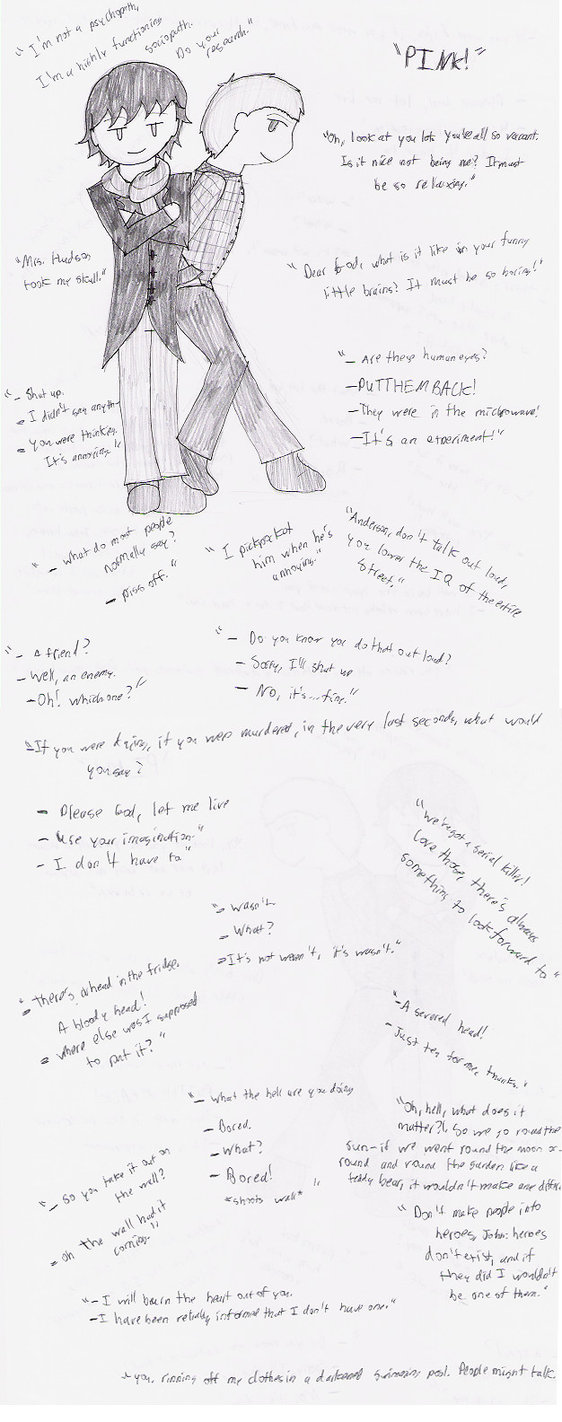 "I'm not a psychopath,
I'm a highly functioning
sociopath. Do your
research."
"PINK!"
"Oh, look at you lots you're all so vacant.
Is it nice not being me? It must
be so relaxing."
"Mrs. Hudson
took my skull."
"Dear God, what is it like in your funny
little brains? It must be so boring!"
"- Are these human eyes?
- PUT THEM BACK!
- They were in the microwave!
- It's an experiment!"
"- Shut up.
- I didn't say anyth-
- you were thinking.
It's annoying."
"- What do most people
normally say?
- piss off."
"I pickpocket
him when he's
annoying."
"Anderson, don't talk out loud,
you lower the IQ of the entire
street."
"- A friend?
- Well, an enemy.
- Oh! which one?"
"- Do you know you do that out loud?
- Sorry, I'll shut up
- No, it's...fine."
"If you were dying, if you were murdered, in the very last seconds, what would
you say?
- Please God, let me live
- Use your imagination"
- I don't have to"
"We've got a serial killer!
Love those, there's always
something to look forward to"
"- wasn't
- What?
- It's not weren't, it's wasn't."
"- There's a head in the fridge.
A bloody head!
- where else was I supposed
to put it?"
"- A severed head!
- Just tea for me, thanks."
"- what the hell are you doing
- Bored.
- What?
- Bored!
*shoots wall*"
"Oh, hell, what does it
matter?!. So we go round the
sun - if we went round the moon or
round and round the garden like a
teddy bear, it wouldn't make any differ
"- So you take it out on
the wall?
- oh the wall had it
coming."
"Don't make people into
heroes, John: heroes
don't exist, and if
they did I wouldn't
be one of them."
"- I will burn the heart out of you.
- I have been reliably informed that I don't have one."
you, ripping off my clothes in a darkened swimming pool. People might talk.